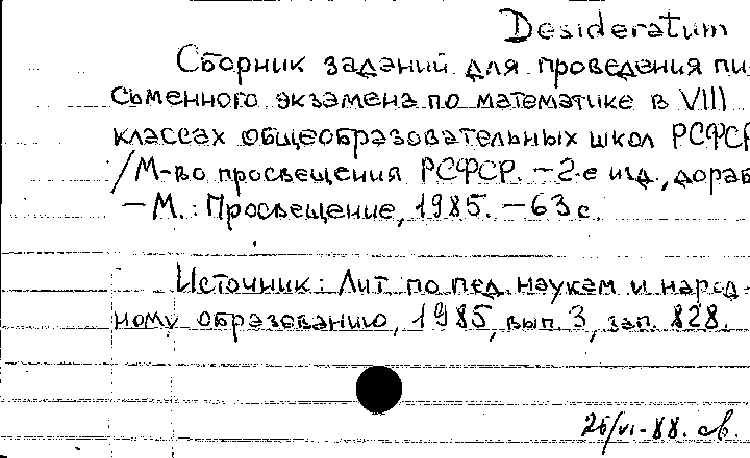 Desideratum
Сборник заданий для проведения пи
сьменного экзамена по математике в VIII
классах общеобразовательных школ РСФСР
/М-во просвещения РСФСР. – 2-е изд., дораб
– М. : Просвещение, 1985. – 63 с.
Источник: Лит по пед. наукам и народ-
ному образованию, 1985, вып. 3, зап. 828.